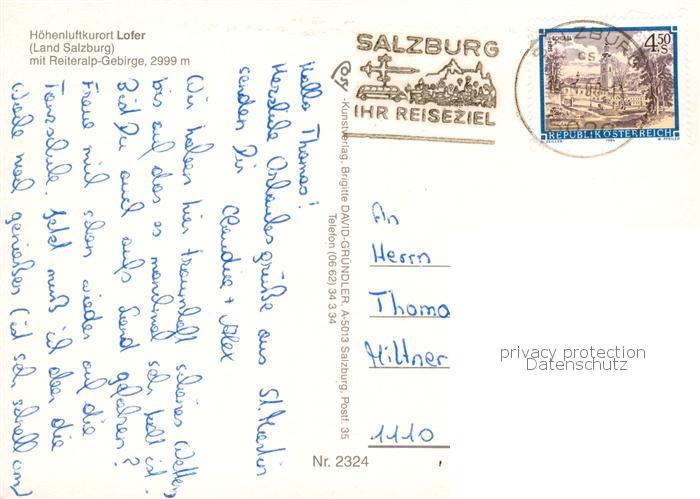 Höhenluftkurort Lofer
(Land Salzburg)
mit Reiteralp-Gebirge, 2999 m
Hallo Thomas!
Herzliche Urlaubsgrüße aus St. Martin
senden Dir
Claudia + Alex
Wir haben hier traumhaft schönes Wetter
bis auf das es manchmal sehr kalt ist.
Bist Du auch aufs Land gefahren?
Freue mich schon wieder auf die
Tanzschule. Jetzt muß ich aber die
Woche noch genießen (ist sehr schnell um)
-Kunstverlag, Brigitte DAVID-GRÜNDLER, A-5013 Salzburg, Postf. 35
Telefon (06 62) 34 3 34
Nr. 2324
SALZBURG
IHR REISEZIEL
SALZBURG
4.50
S
REPUBLIK ÖSTERREICH
1984
An
Herrn
Thoma
Miltner
1110
privacy protection
Datenschutz